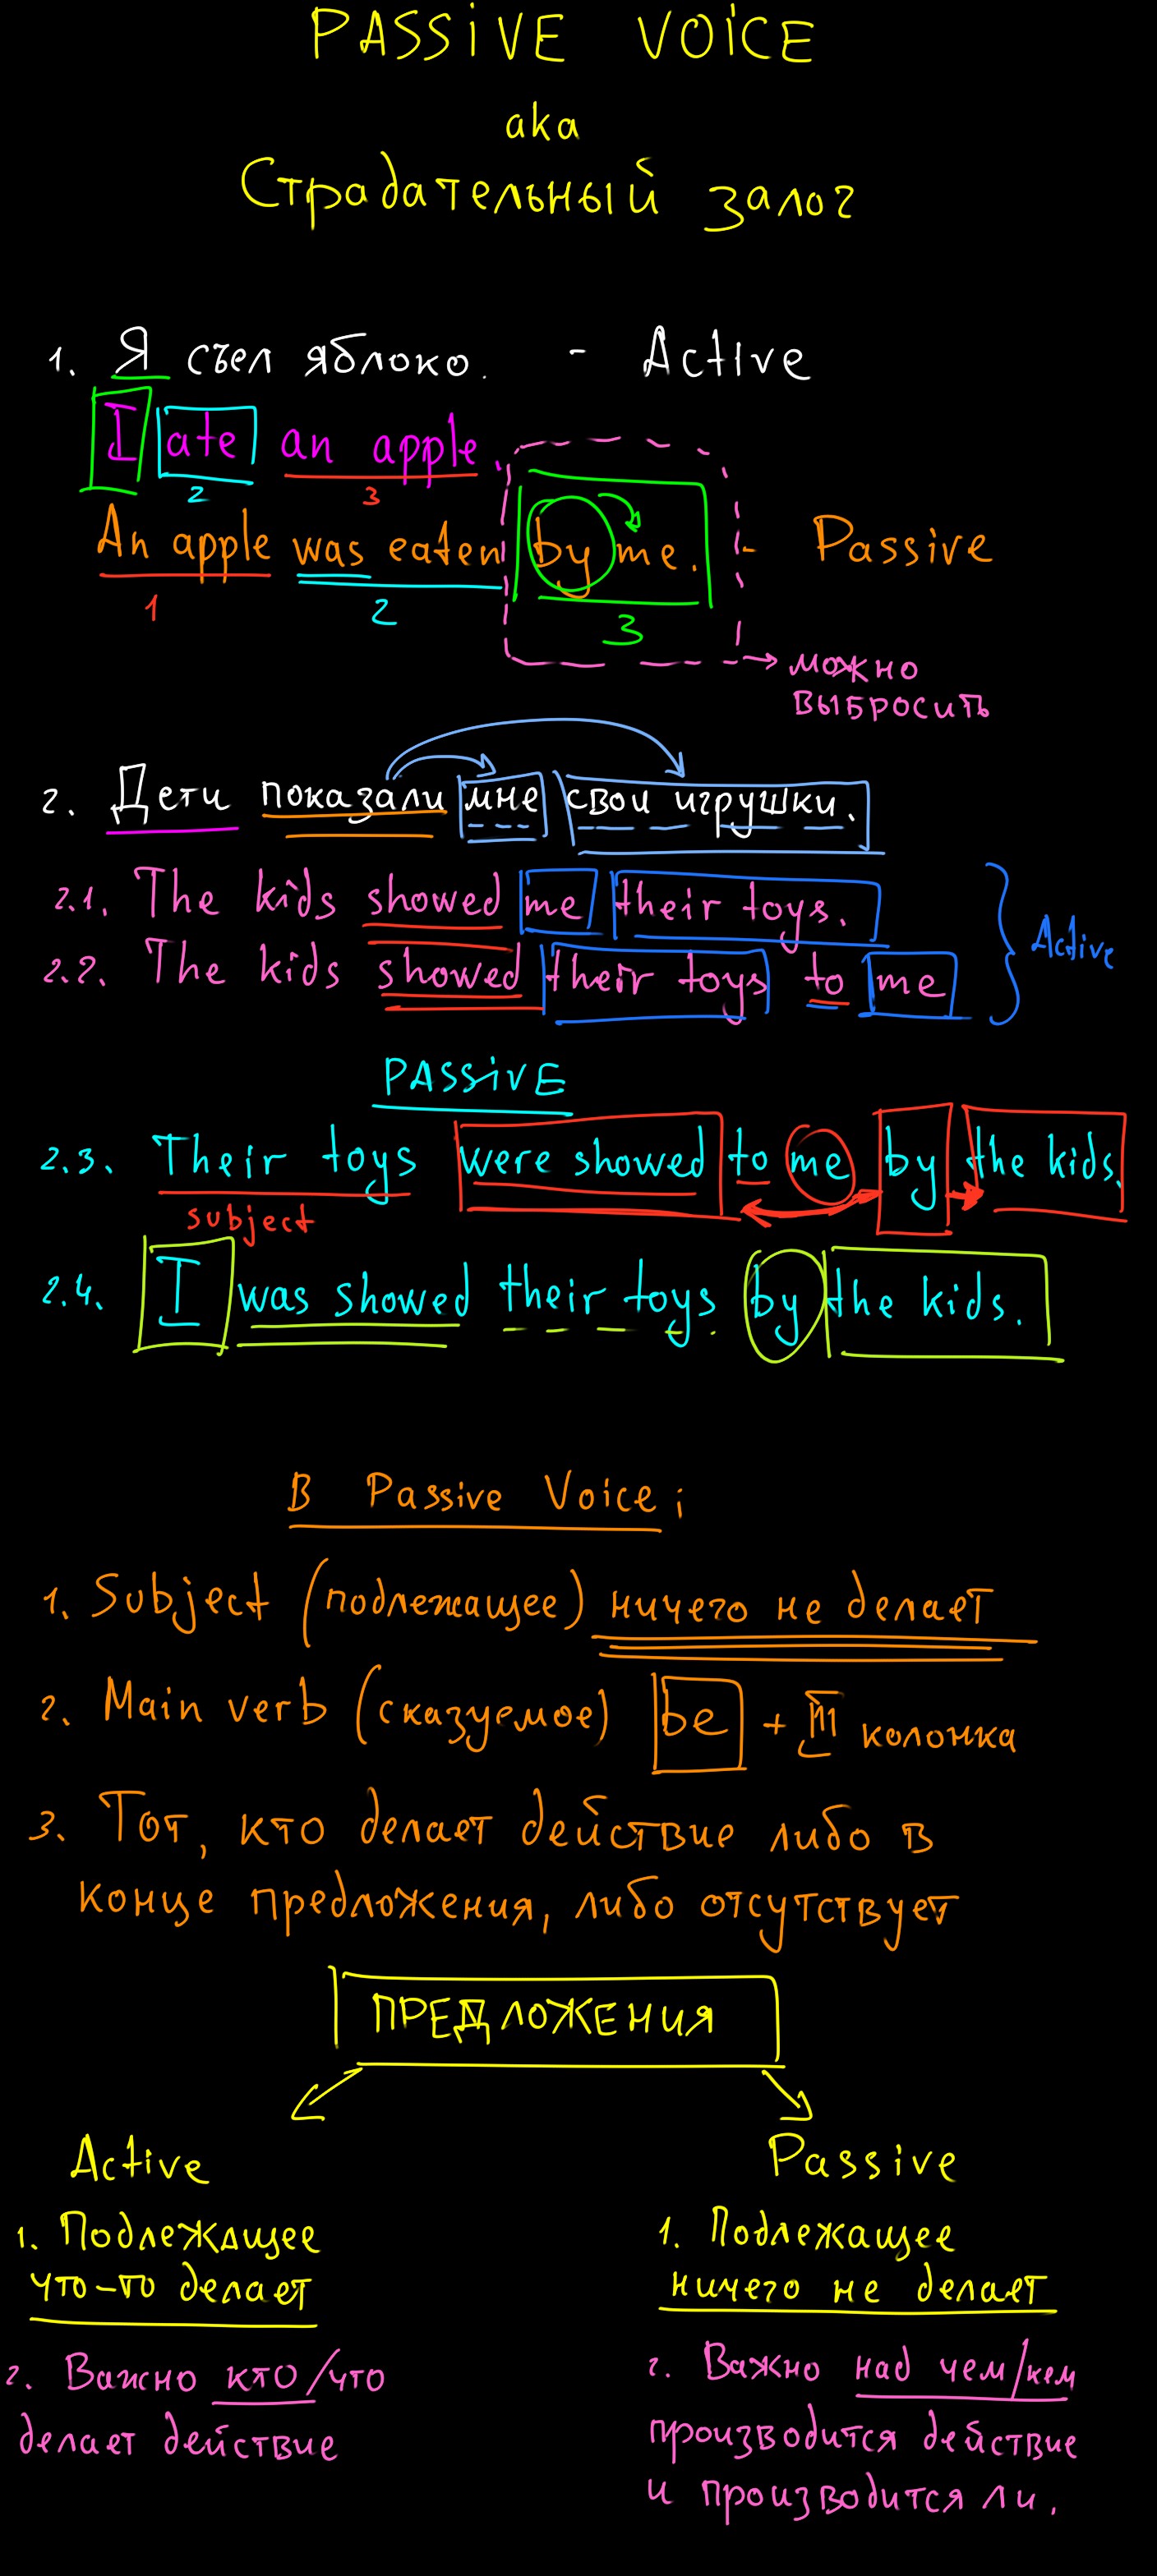 PASSIVE VOICE
aka
Страдательный залог
1. Я съел яблоко. - Active
I ate an apple.
2 3
An apple was eaten by me. - Passive
1 2 3
можно
выбросить
2. Дети показали мне свои игрушки.
2.1. The kids showed me their toys.
Active
2.2. The kids showed their toys to me
PASSIVE
2.3. Their toys were showed to me by the kids.
subject
2.4. I was showed their toys by the kids.
В Passive Voice:
1. Subject (подлежащее) ничего не делает
2. Main verb (сказуемое) be + III колонка
3. Тот, кто делает действие либо в
конце предложения, либо отсутствует
ПРЕДЛОЖЕНИЯ
Active
1. Подлежащее
что-то делает
2. Важно кто/что
делает действие
Passive
1. Подлежащее
ничего не делает
2. Важно над чем/кем
производится действие
и производится ли.